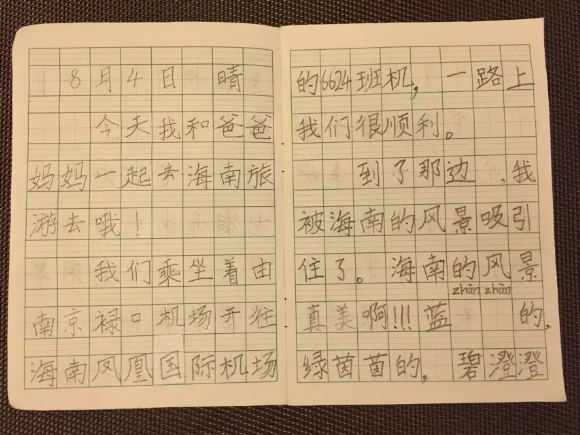 8月4日 晴
今天我和爸爸
妈妈一起去海南旅
游去哦！
我们乘坐着由
南京禄口机场开往
海南凤凰国际机场
的6624班机，一路上
我们很顺利。
到了那边，我
被海南的风景吸引
住了。海南的风景
zhàn zhàn
真美啊!!!蓝 的，
绿茵茵的，碧澄澄